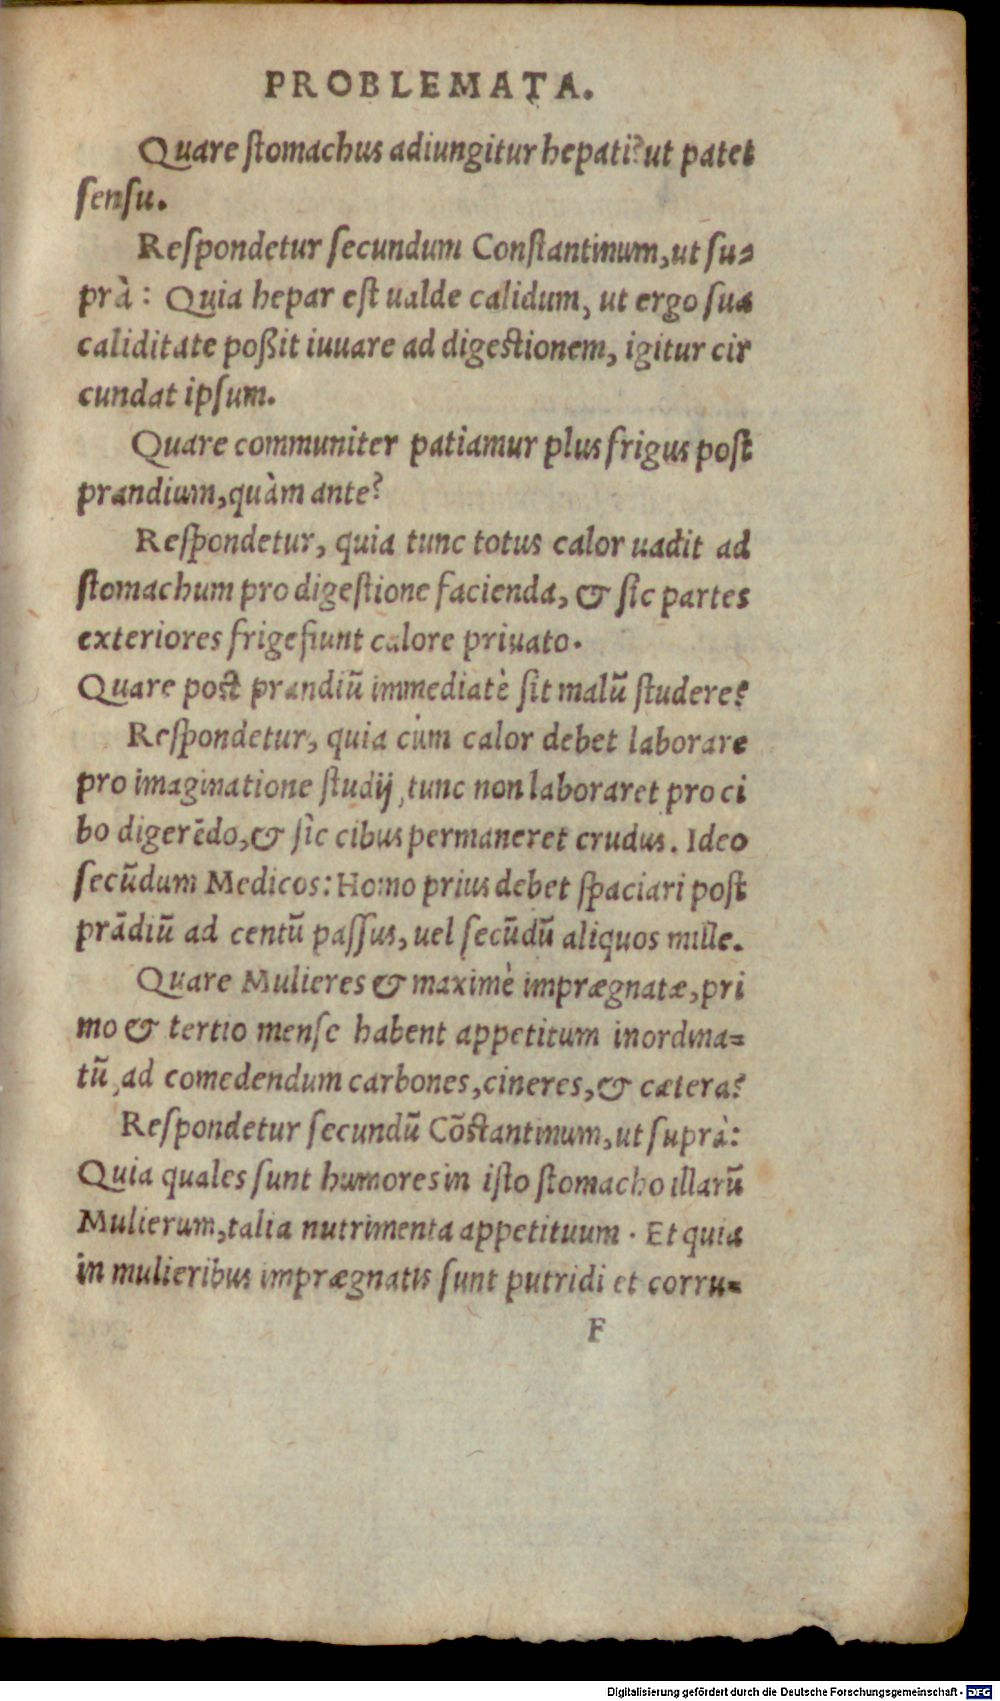 PROBLEMATA.
Quare ſtomachus adiungitur hepati? ut patet
ſenſu.
Reſpondetur ſecundum Conſtantinum, ut ſu⸗
prà: Quia hepar eſt ualde calidum, ut ergo ſua
caliditate poßit iuuare ad digeſtionem, igitur cir
cundat ipſum.
Quare communiter patiamur plus frigus poſt
prandium, quàm ante?
Reſpondetur, quia tunc totus calor uadit ad
ſtomachum pro digeſtione facienda, & ſic partes
exteriores frigefiunt calore priuato.
Quare poſt prandiū immediatè ſit malū ſtudere?
Reſpondetur, quia cùm calor debet laborare
pro imaginatione ſtudij, tunc non laboraret pro ci
bo digerēdo, & ſic cibus permaneret crudus. Ideo
ſecūdum Medicos: Homo prius debet ſpaciari poſt
prādiū ad centū paſſus, uel ſecūdū aliquos mille.
Quare Mulieres & maximè imprægnatæ, pri
mo & tertio menſe habent appetitum inordina⸗
tū, ad comedendum carbones, cineres, & cætera?
Reſpondetur ſecundū Cōſtantinum, ut ſuprà:
Quia quales ſunt humores in iſto ſtomacho illarū
Mulierum, talia nutrimenta appetituum. Et quia
in mulieribus imprægnatis ſunt putridi et corru⸗
F
Digitalisierung gefördert durch die Deutsche Forschungsgemeinschaft - DFG